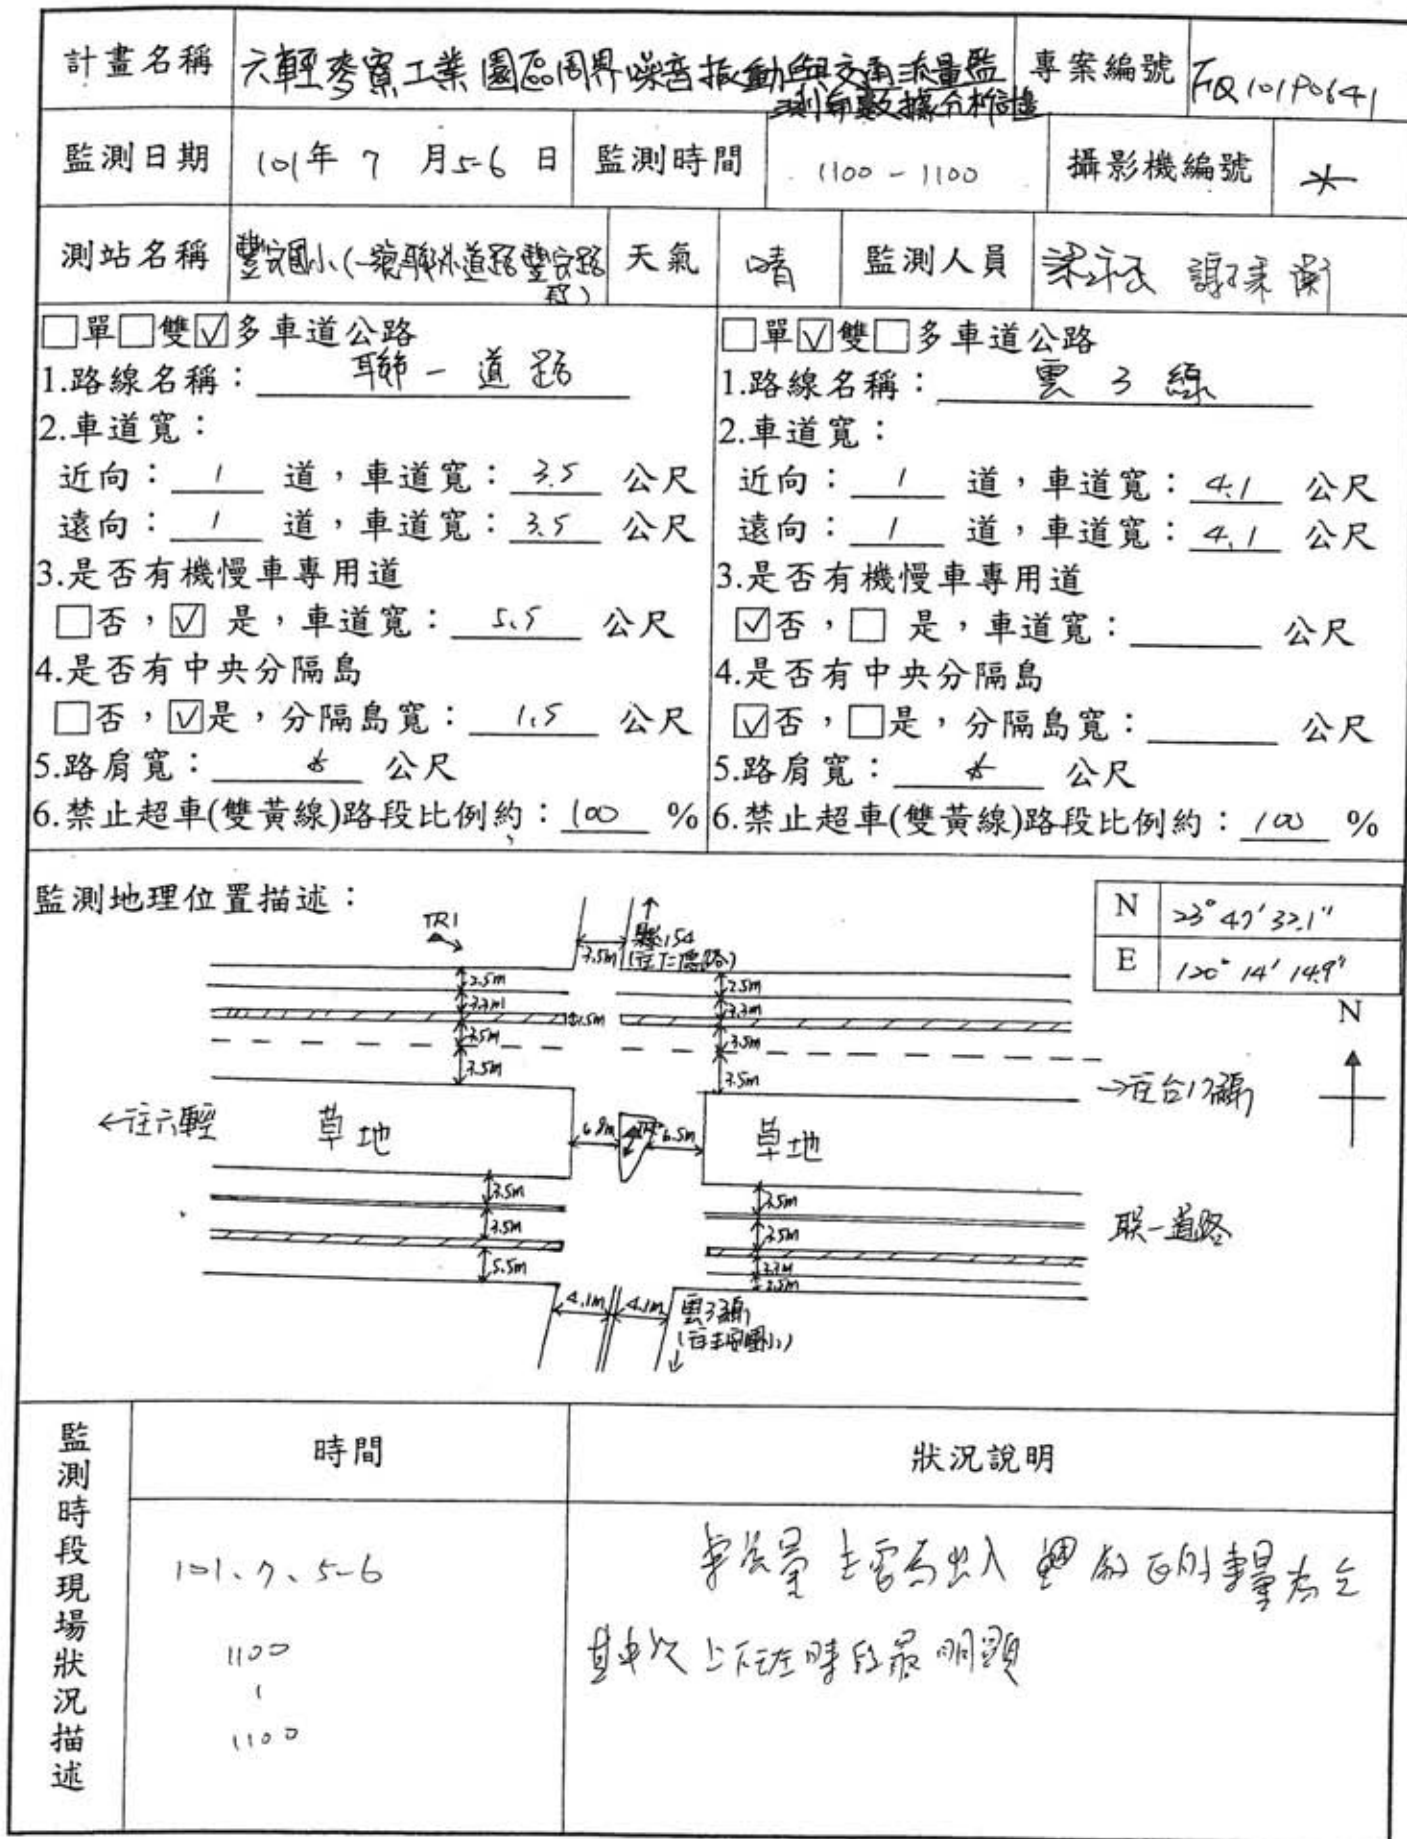 計畫名稱 六輕麥寮工業園區周界噪音振動與交通流量監測與數據分析計畫 專案編號 FQ101P0641
監測日期 101年 7 月5-6 日 監測時間 1100-1100 攝影機編號 *
測站名稱 豐安國小(一號聯外道路豐安路段) 天氣 晴 監測人員
□單□雙☑多車道公路
1.路線名稱：聯一道路
2.車道寬：
近向：1 道，車道寬：3.5 公尺
遠向：1 道，車道寬：3.5 公尺
3.是否有機慢車專用道
□否，☑ 是，車道寬：5.5 公尺
4.是否有中央分隔島
□否，☑是，分隔島寬：1.5 公尺
5.路肩寬：* 公尺
6.禁止超車(雙黃線)路段比例約：100 %
□單☑雙□多車道公路
1.路線名稱：雲3線
2.車道寬：
近向：1 道，車道寬：4.1 公尺
遠向：1 道，車道寬：4.1 公尺
3.是否有機慢車專用道
☑否，□ 是，車道寬：____ 公尺
4.是否有中央分隔島
☑否，□是，分隔島寬：____ 公尺
5.路肩寬：* 公尺
6.禁止超車(雙黃線)路段比例約：100 %
監測地理位置描述：
N 23°47'32.1"
E 120°14'14.9"
N
TR1
3.5m
縣154
(往仁德路)
2.5m
2.5m
3.3m
3.3m
1.5m
3.5m
3.5m
3.5m
3.5m
→往台17線
←往六輕
草地
6.8m
6.5m
草地
3.5m
3.5m
3.5m
3.5m
联一道路
5.5m
3.3m
2.5m
4.1m
4.1m
雲3線
監測時段現場狀況描述
時間
狀況說明
101、7、5-6
1100
|
1100
車流量主要為出入
上下班時段最明顯